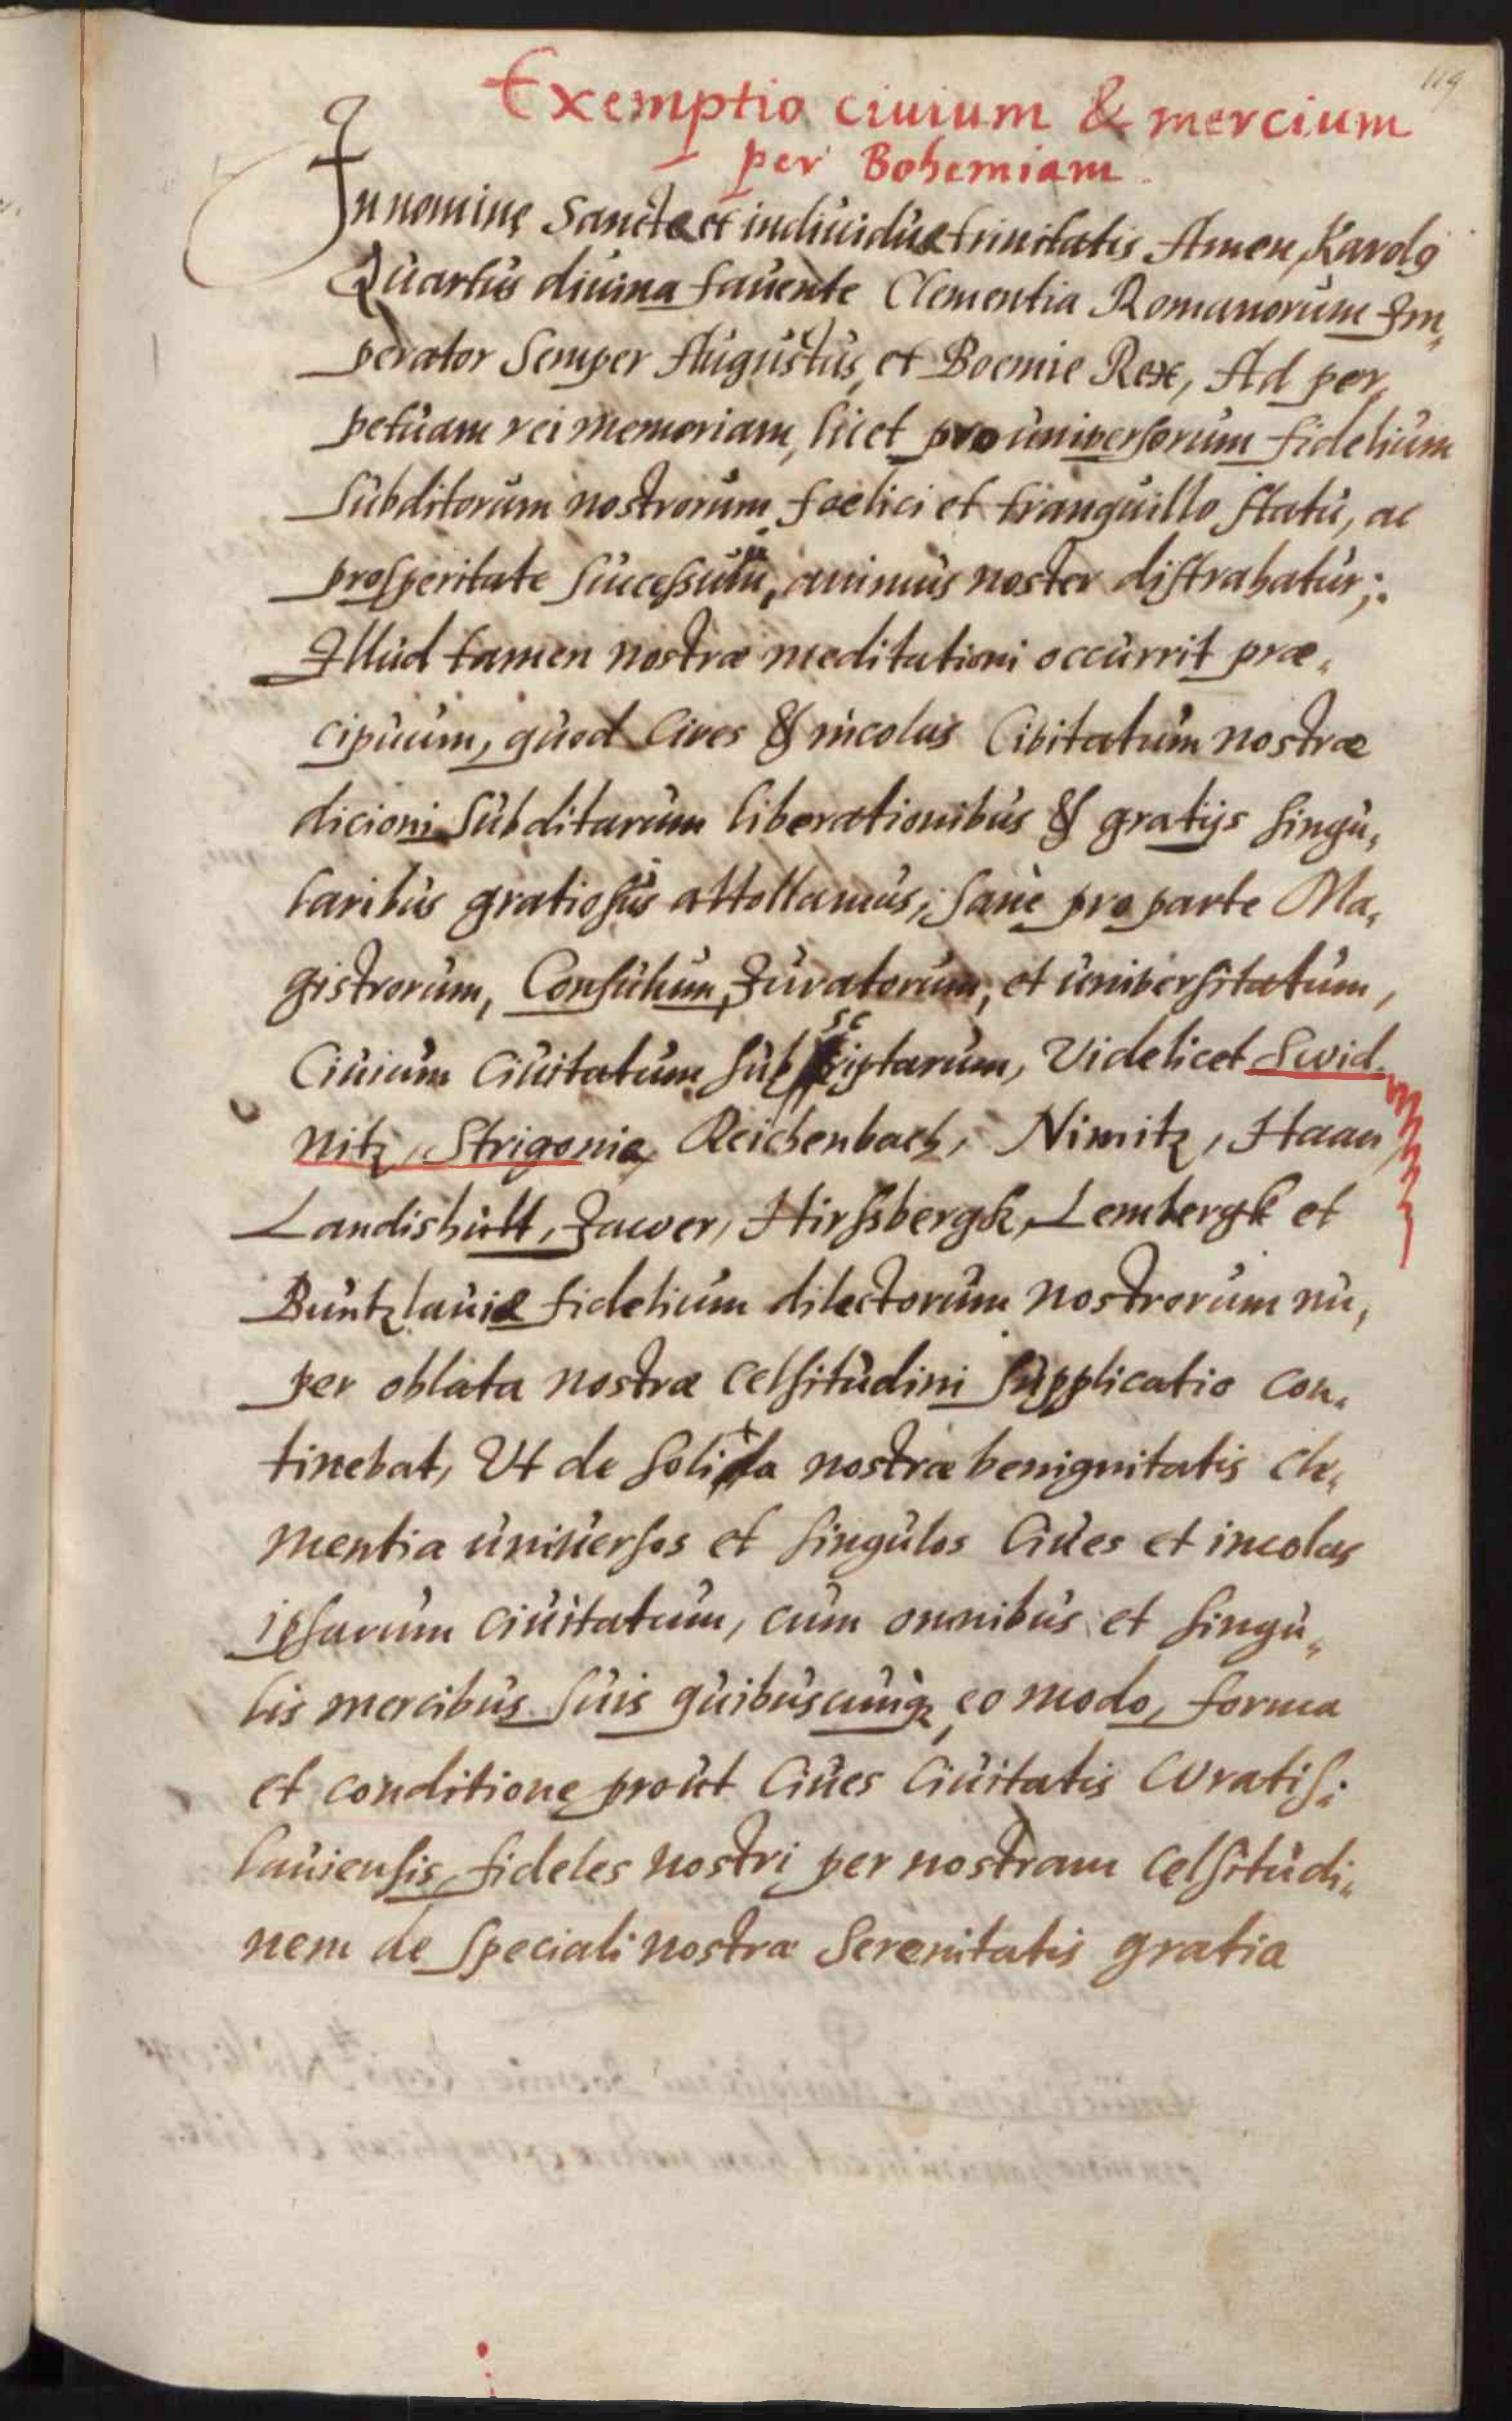 119
Exemptio ciuium & mercium
per Bohemiam.
In nomine Sanctæ et indiuiduæ trinitatis Amen, Karolꝯ
Quartus diuina fauente Clementia Romanorum Im„
perator Semper Augustus, et Boemie Rex, Ad per„
petuam rei memoriam, licet pro universorum fidelium
Subditorum nostrorum foelici et tranquillo statu, ac
prosperitate successuum, animus noster distrahatur;.
Illud tamen nostræ meditationi occurrit præ„
cipuum, quod Cives & incolas Civitatum nostræ
dicioni Subditarum liberationibus & gratijs singu„
laribus gratiosius attollamus; sane pro parte Ma„
gistrorum, Consulum, Juratorum, et universitatum,
Ciuium Ciuitatum subscriptarum, Videlicet Swid„
nitz, Strigonia, Reichenbach, Nimitz, Haan,
Landishütt, Jawer, Hirssbergk, Lembergk et
Buntzlauiæ fidelium dilectorum nostrorum nu„
per oblata nostræ celsitudini supplicatio con„
tinebat, Ut de solita nostræ benignitatis cle„
mentia universos et singulos Ciues et incolas
ipsarum ciuitatum, cum omnibus et singu„
lis mercibus suis quibuscunqꝫ, eo modo, forma
et conditione prout Ciues Ciuitatis Wratis:
lauiensis fideles nostri per nostram celsitudi„
nem de speciali nostræ Serenitatis gratia